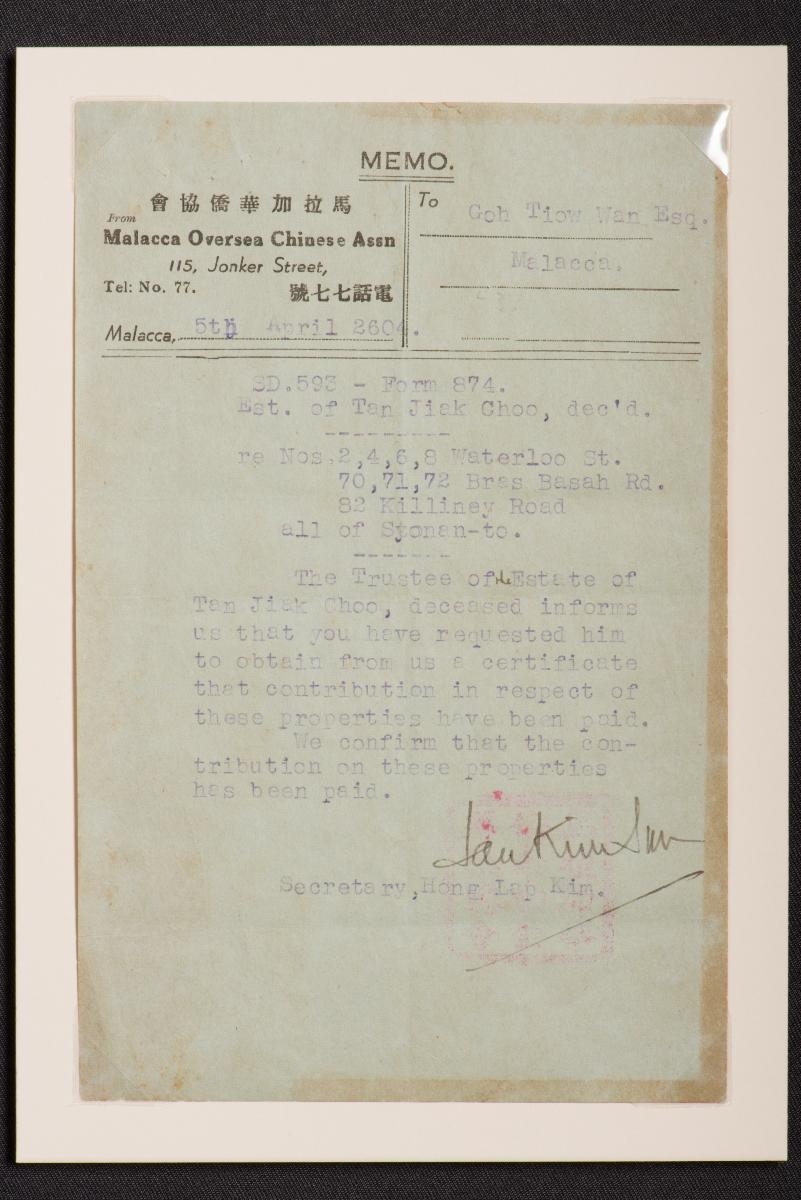 MEMO.
會協僑華加拉馬
From
Malacca Oversea Chinese Assn
115, Jonker Street,
Tel: No. 77.
號七七話電
Malacca, 5th April 2604.
To Goh Tiow Wan Esq.
Malacca.
SD.593 - Form 874.
Est. of Tan Jiak Choo, dec'd.
---------
re Nos.2,4,6,8 Waterloo St.
70,71,72 Bras Basah Rd.
82 Killiney Road
all of Syonan-to.
-------
The Trustee of the Estate of
Tan Jiak Choo, deceased informs
us that you have requested him
to obtain from us a certificate
that contribution in respect of
these properties have been paid.
We confirm that the con-
tribution on these properties
has been paid.
Secretary, Hong Lap Kim.